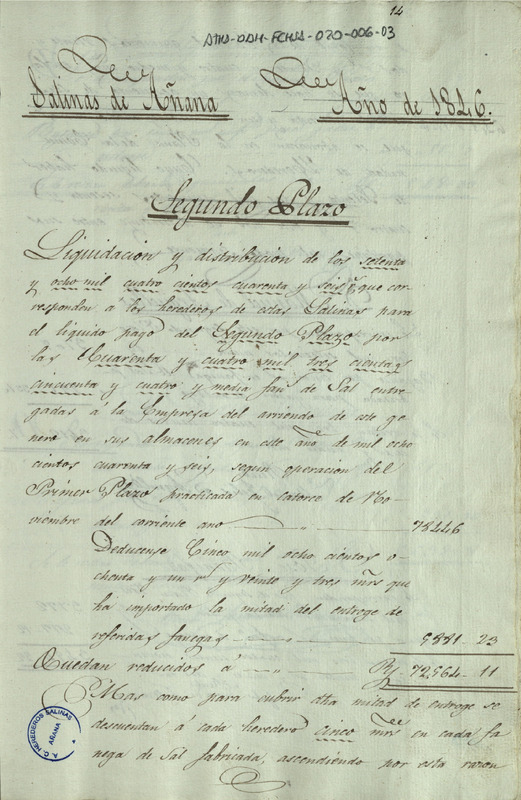 14
ATHA-DAH-FCHSA-020-006-03
Salinas de Añana Año de 1846.
Segundo Plazo
Liquidacion y distribucion de los setenta
y ocho mil cuatro cientos cuarenta y seis rs que cor-
responden á los herederos de estas Salinas para
el liquido pago del Segundo Plazo por
las Cuarenta y cuatro mil tres cientas
cincuenta y cuatro y media fans de Sal entre-
gadas á la Empresa del arriendo de este ge-
nero en sus almacenes en este año de mil ocho
cientos cuarenta y seis, segun operacion del
Primer Plazo practicada en catorce de No-
viembre del corriente año 78446
Deducense Cinco mil ocho cientos o-
chenta y un rs y veinte y tres mrs que
ha importado la mitad del entrege de
referidas fanegas 5881-23
Quedan reducidos á Rs 72,564-11
Mas como para cubrir dha mitad de entrege se
descuentan á cada heredero cinco mrs en cada fa-
nega de Sal fabricada, ascendiendo por esta razon
HEREDEROS SALINAS
AÑANA